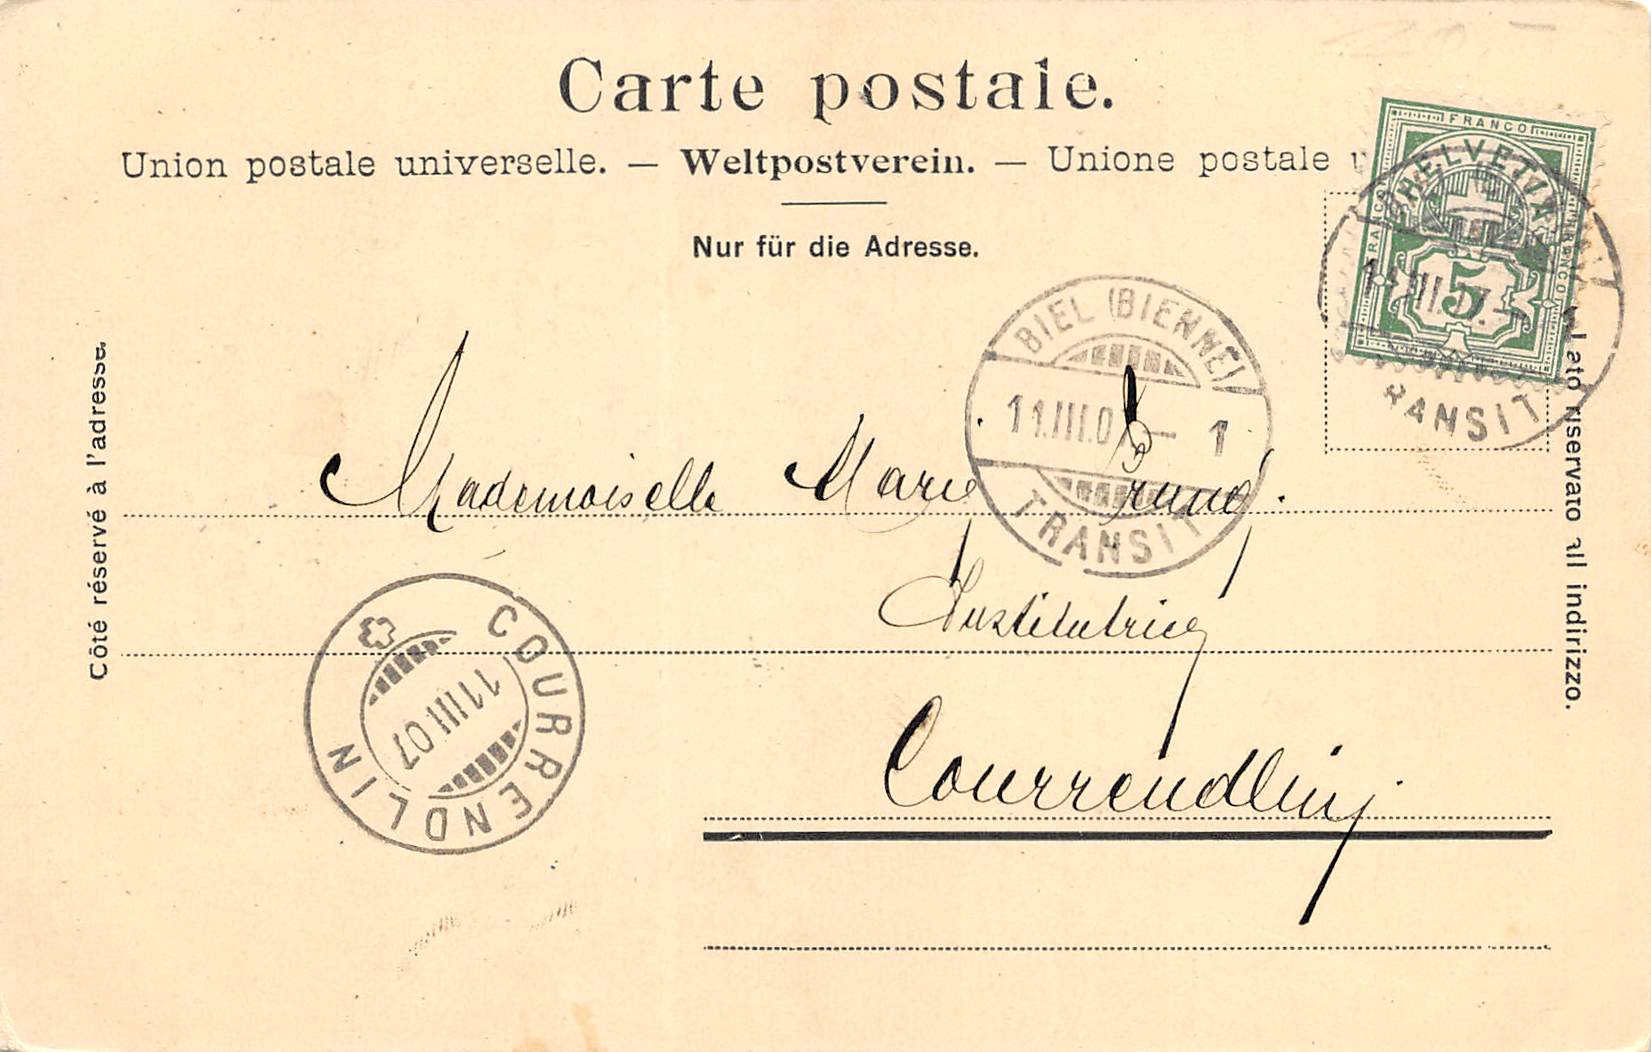 Carte postale.
Union postale universelle. — Weltpostverein. — Unione postale
Nur für die Adresse.
Côté réservé à l'adresse.
Lato riservato all indirizzo.
FRANCO
FRANCO
FRANCO
HELVETIA
5
11.III.07.
TRANSIT
BIEL (BIENNE)
11.III.07 — 1
TRANSIT
Mademoiselle Marie
Institutrice
Courrendlin
COURRENDLIN
11 III 07